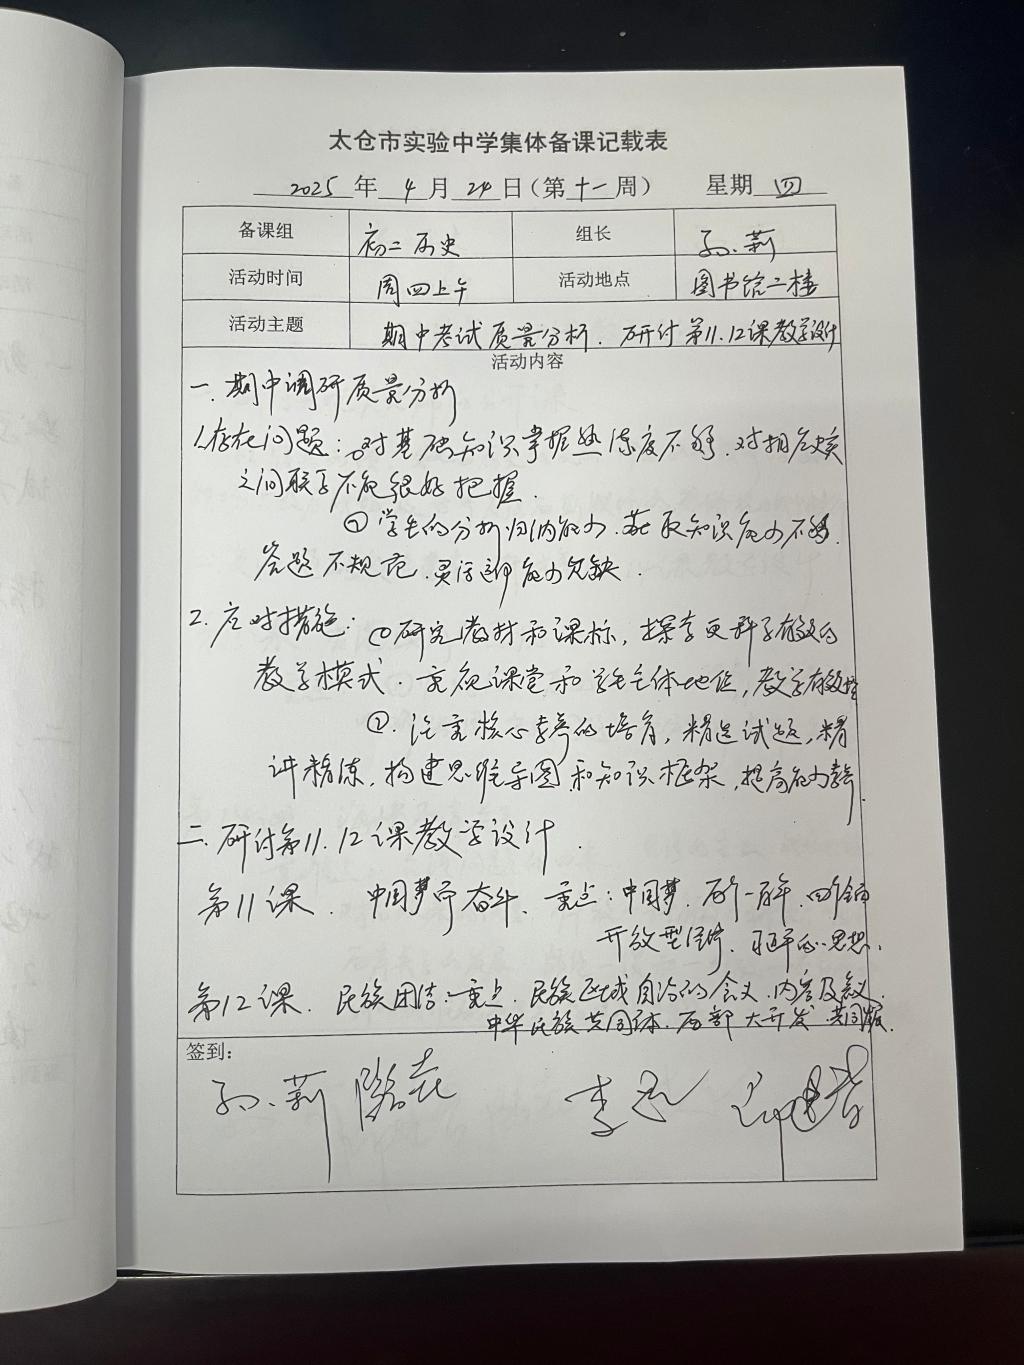 太仓市实验中学集体备课记载表
2025 年 4 月 24 日（第 十一 周） 星期 四
备课组 初二历史 组长 孙莉
活动时间 周四上午 活动地点 图书馆二楼
活动主题 期中考试质量分析．研讨第11.12课教学设计
活动内容
一．期中调研质量分析
1.存在问题：①对基础知识掌握熟练度不够．对相应史实
之间联系不能很好把握．
②学生的分析归纳能力．获取知识能力不够．
答题不规范．灵活运用能力欠缺．
2.应对措施：①研究教材和课标，探索更科学有效的
教学模式．重视课堂和学生主体地位，教学有效性
②．注重核心素养的培育，精选试题，精
讲精练，构建思维导图和知识框架，提高能力素养．
二．研讨第11.12课教学设计．
第11课．中国梦 奋斗、重点：中国梦．两个一百年．四个全面
开放型经济．习近平 思想．
第12课．民族团结：重点．民族区域自治的含义．内容及意义．
中华民族共同体．西部大开发．共同
签到：
孙莉 李